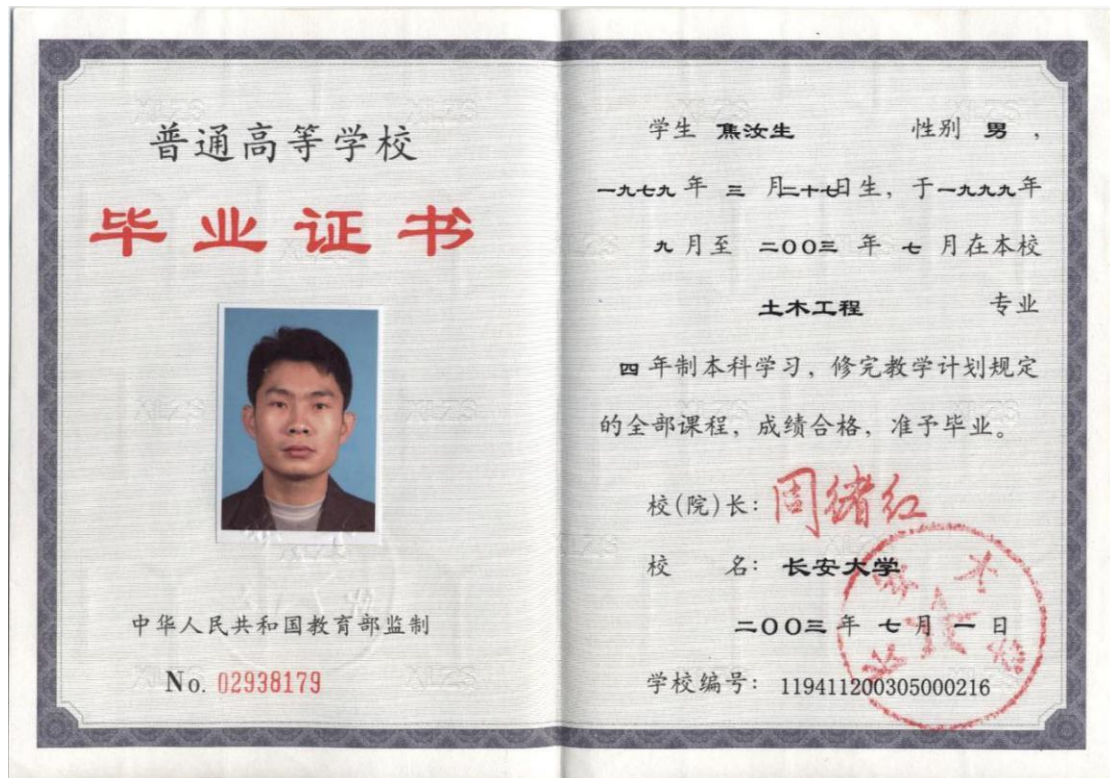 普通高等学校
毕业证书
中华人民共和国教育部监制
No. 02938179
学生 焦汝生 性别 男，
一九七九年 三 月二十七日生，于一九九九年
九月至 二〇〇三 年 七 月在本校
土木工程 专业
四 年制本科学习，修完教学计划规定
的全部课程，成绩合格，准予毕业。
校(院)长：周绪红
校 名：长安大学
二〇〇三 年 七 月 一 日
学校编号：119411200305000216
XLZS